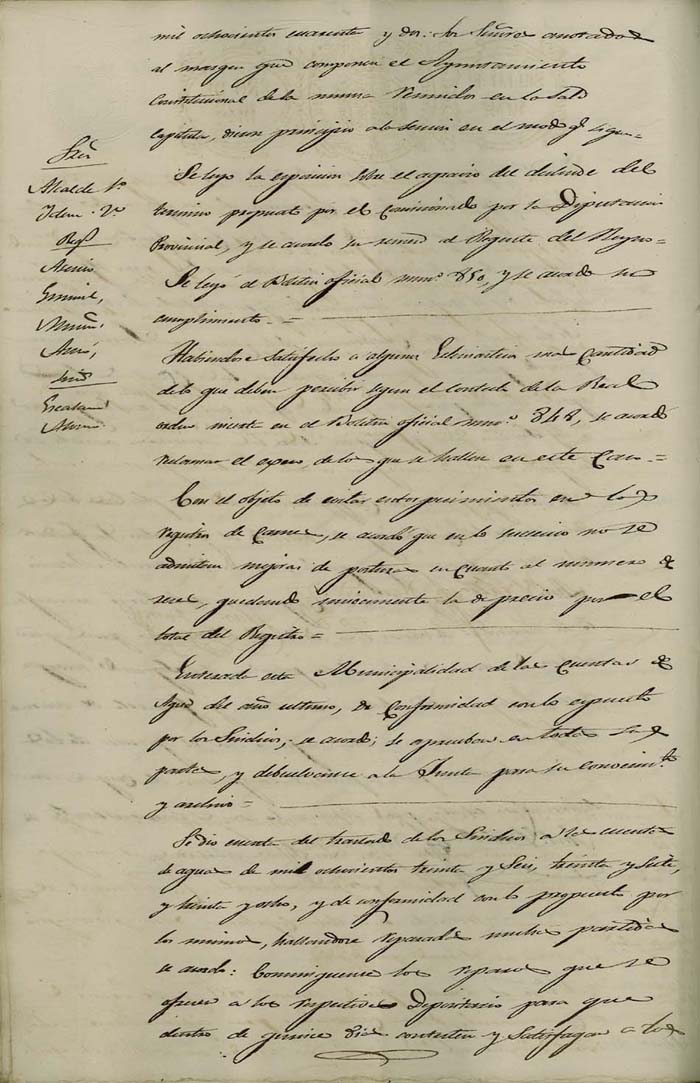 mil ochocientos cuarenta y dos: los Señores anotados
al margen que componen el Ayuntamiento
Constitucional de la misma reunidos en la Sala
Capitular, dieron principio a la sesion en el modo qe sigue
Sres
Alcalde 1º
Idem 2º
Regs
Se leyó la esposicion sobre el agravio del deslinde del
termino propuesto por el Comisionado por la Diputacion
Provincial, y se acordo su remision al Regente del Reyno=
Se leyó el Boletin oficial numº 850, y se acordó su
cumplimiento.=
Habiendose satisfecho a algunos mas Cantidad
de lo que deben percibir segun el contesto de la Real
orden inserta en el Boletin oficial numº 848, se acordó
reclamar el exceso, de los que se hallen en este Caso=
Con el objeto de evitar entorpecimientos en los
registros de Carnes, se acordó que en lo sucesivo no se
admitan mejoras de posturas en cuanto al numero de
reses, quedando unicamente la de precio por el
total del Registro=
Enterada esta Municipalidad de las Cuentas de
Agua del año ultimo, de Conformidad con lo espuesto
por los Sindicos, se acordó; se aprueban en todas sus
partes, y debuelvanse a la Junta para su Conocimto
y archivo=
Se dio cuenta del traslado de los Sindicos a las cuentas
de agua de mil ochocientos treinta y Seis, treinta y Siete,
y treinta y ocho, y de conformidad con lo propuesto por
los mismos, hallandose reparadas muchas partidas
se acordo: Comuniquense los reparos que se
ofrecen a los respectivos Depositarios para que
dentro de quince dias contesten y Satisfagan a los